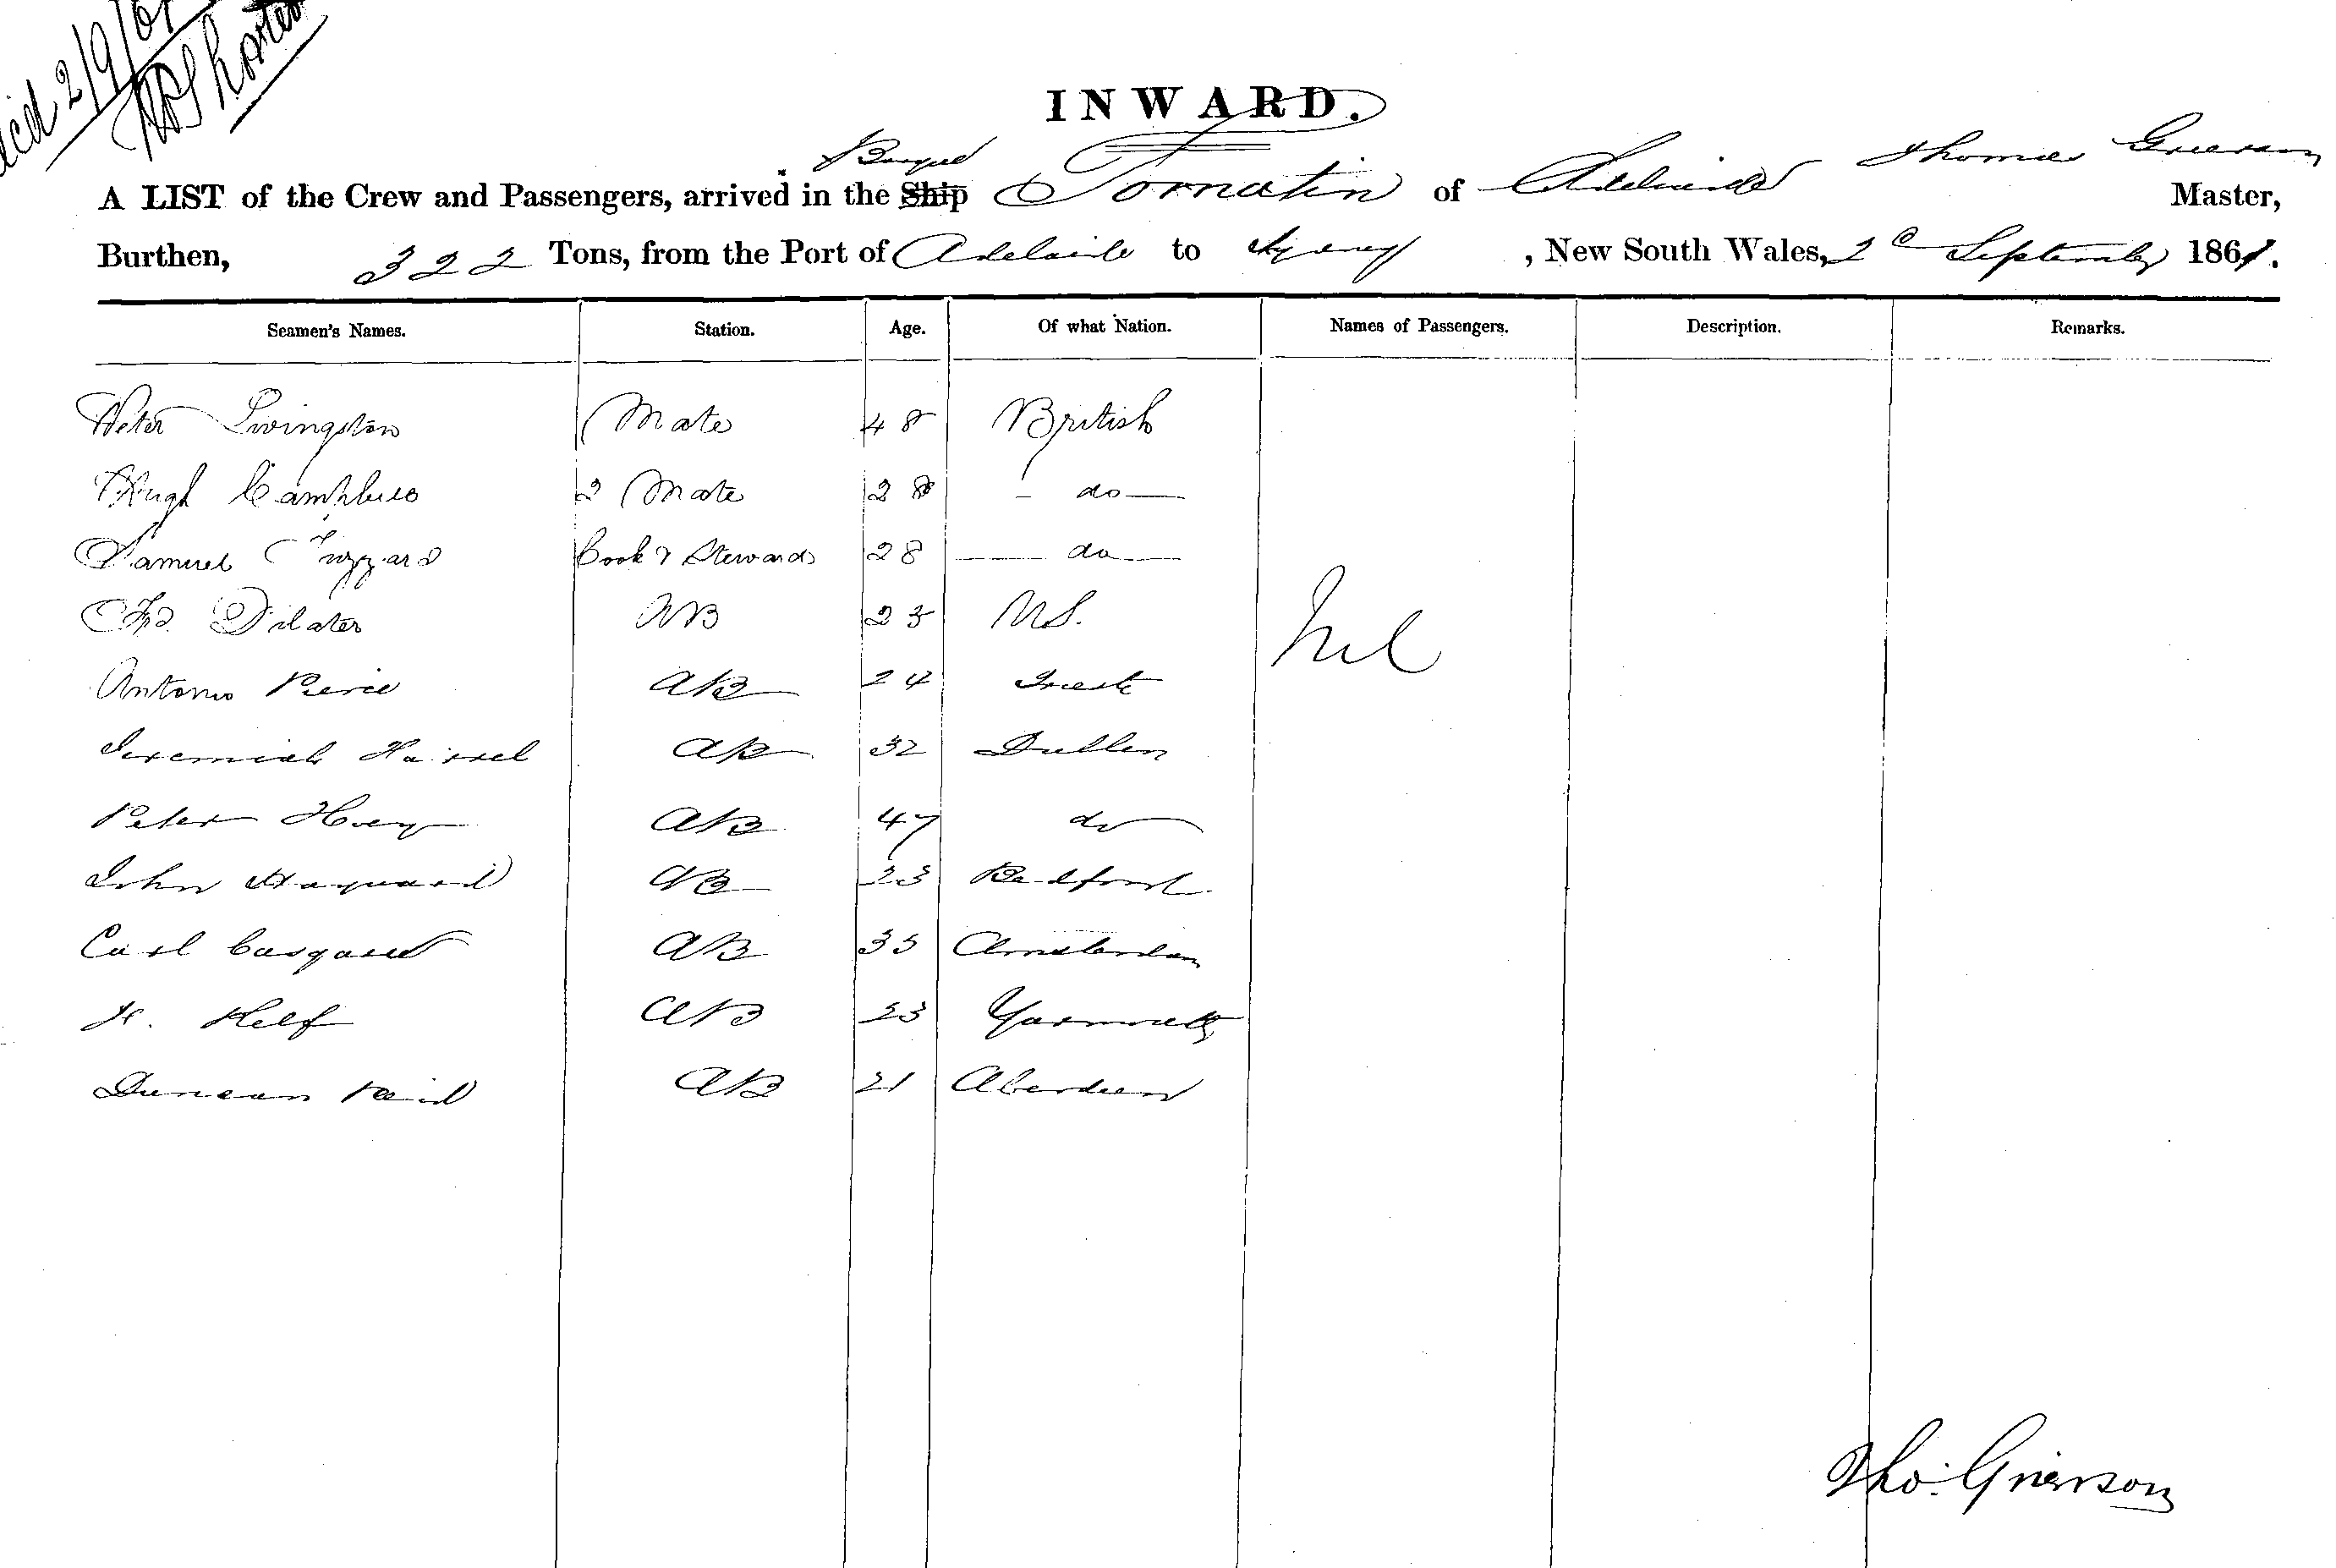 2/9/61
INWARD.
Barque Thomas Grierson
A LIST of the Crew and Passengers, arrived in the Ship Tornatin of Adelaide Master,
Burthen, 322 Tons, from the Port of Adelaide to Sydney, New South Wales, 2d September 1861.
Seamen's Names. Station. Age. Of what Nation. Names of Passengers. Description. Remarks.
Peter Livingston Mate 48 British
Hugh Campbell 2 Mate 28 - do -
Samuel Cook & Steward 28 - do -
AB 23 US.
Antonio Pierce AB 24 Trieste
Nil
Jeremiah AB 32 Dublin
Peter Hoey AB 47 do
John Hayward AB 23 Bedford
Carl AB 35 Amsterdam
H. Helf AB 23 Yarmouth
Duncan Reid AB 21 Aberdeen
Tho: Grierson